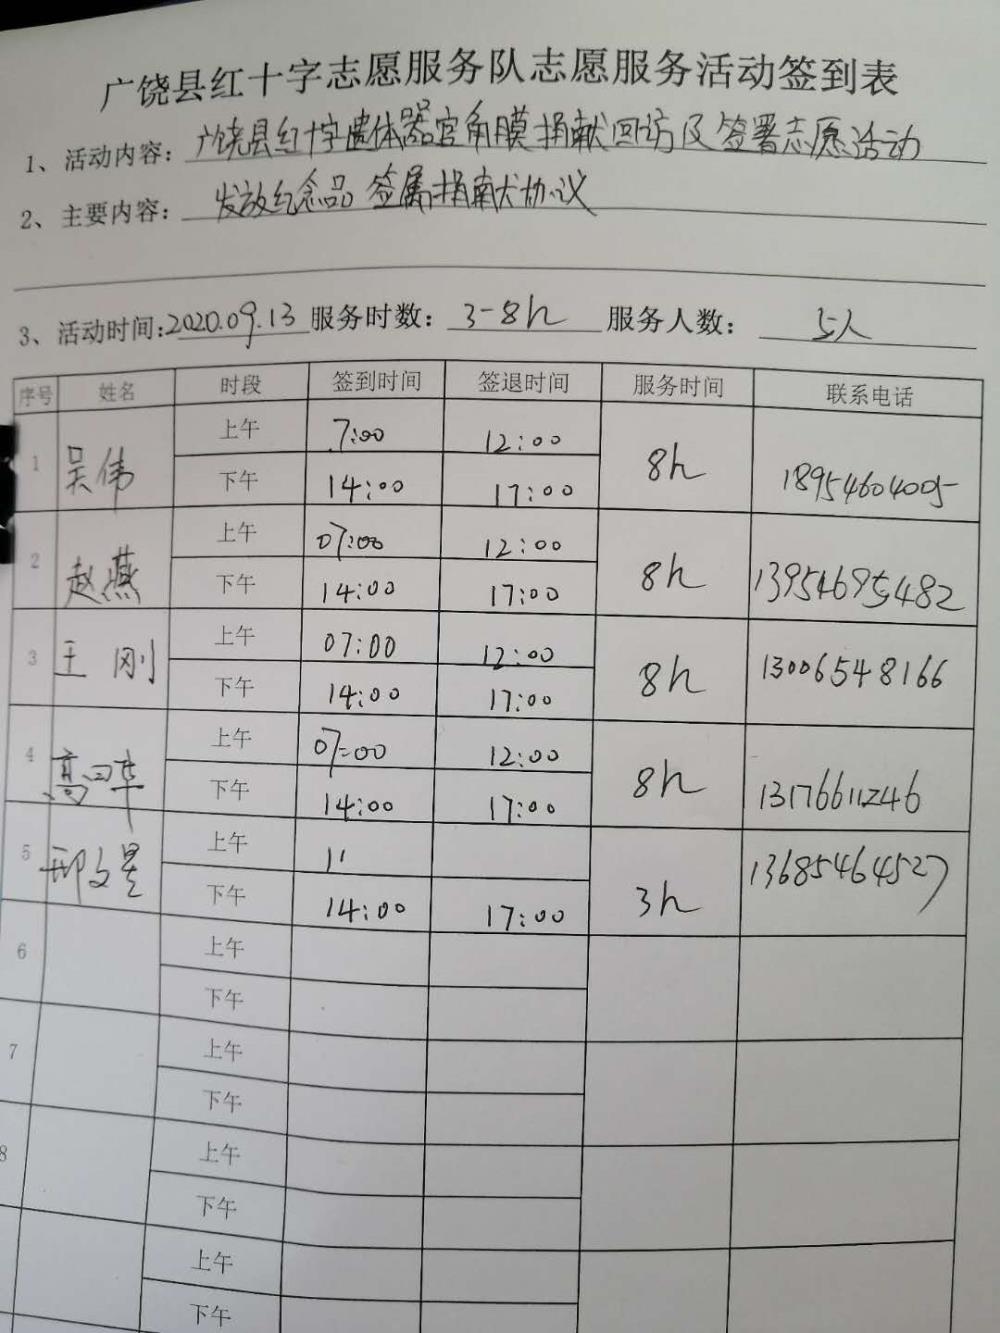 广饶县红十字志愿服务队志愿服务活动签到表
1、活动内容：广饶县红十字遗体器官角膜捐献回访及签署志愿活动
2、主要内容：发放纪念品 签属捐献协议
3、活动时间：2020.09.13 服务时数：3-8h 服务人数：5人
序号 姓名 时段 签到时间 签退时间 服务时间 联系电话
1 吴伟 上午 7:00 12:00 8h 18954604005
下午 14:00 17:00
2 赵燕 上午 07:00 12:00 8h 13954695482
下午 14:00 17:00
3 王刚 上午 07:00 12:00 8h 13006548166
下午 14:00 17:00
4 高 华 上午 07:00 12:00 8h 13176611246
下午 14:00 17:00
5 邢文 上午 11 3h 13685464527
下午 14:00 17:00
6 上午
下午
7 上午
下午
8 上午
下午
上午
下午